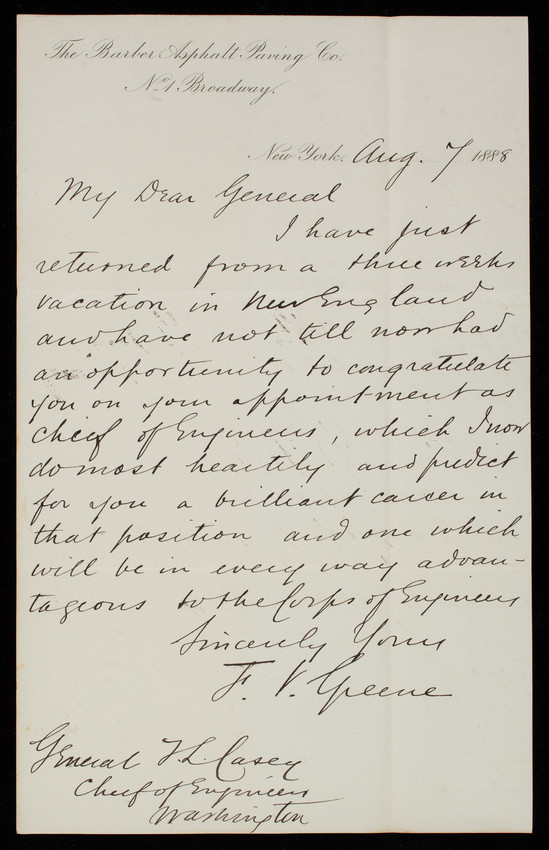 The Barber Asphalt Paving Co.
No. 1 Broadway.
New York, Aug. 7 1888
My Dear General
I have just
returned from a three weeks
vacation in New England
and have not till now had
an opportunity to congratulate
you on your appointment as
Chief of Engineers, which I now
do most heartily and predict
for you a brilliant career in
that position and one which
will be in every way advan-
tageous to the Corps of Engineers
Sincerely Yours
F. V. Greene
General T. L. Casey
Chief of Engineers
Washington